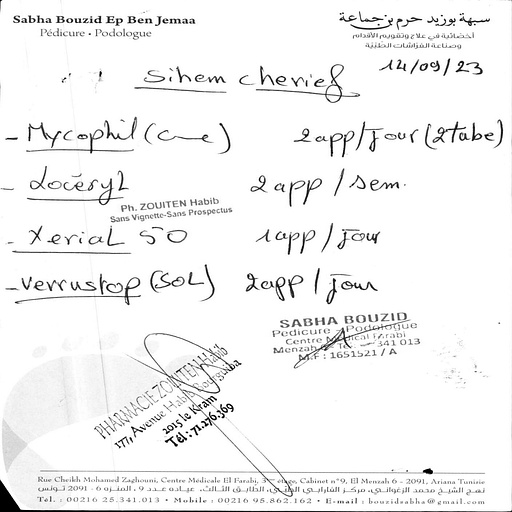 Sabha Bouzid Ep Ben Jemaa
Pédicure - Podologue
سبهة بوزيد حرم بن جماعة
أخصائية في علاج وتقويم الأقدام
وصناعة الفراشات الطبية
14/09/23
Sihem cherief
- Mycophil (cme) 2app/jour (2tube)
- Locéryl 2app/sem.
Ph. ZOUITEN Habib
Sans Vignette-Sans Prospectus
- Xerial 50 1app/jour
- Verrustop (SOL) 2app/jour
SABHA BOUZID
Pédicure - Podologue
Centre Médical Farabi
Menzah 341 013
M.F : 1651521 / A
PHARMACIE ZOUITEN Habib
177, Avenue Habib Bourguiba
2015 le Kram
Tél : 71.276.369
Rue Cheikh Mohamed Zaghouni, Centre Médicale El Farabi, 3ème étage, Cabinet n°9, El Menzah 6 - 2091, Ariana Tunisie
نهج الشيخ محمد الزغواني، مركز الفارابي الطبي، الطابق الثالث، عيادة عدد 9، المنزه 6 - 2091 تونس
Tel. : 00216 25.341.013 - Mobile : 00216 95.862.162 - E-mail : bouzidsabha@gmail.com